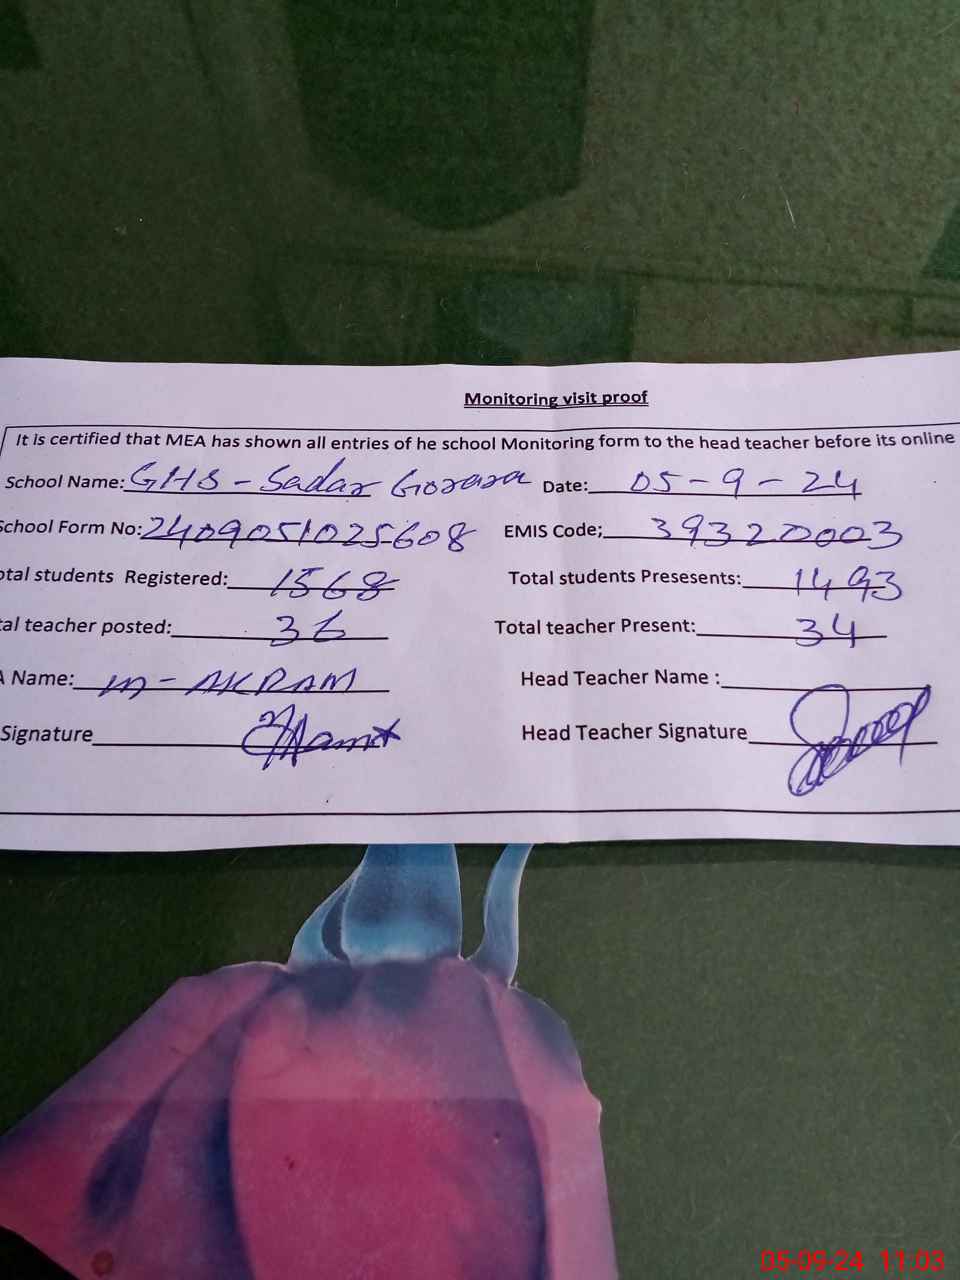 Monitoring visit proof
It is certified that MEA has shown all entries of he school Monitoring form to the head teacher before its online
School Name: GHS - Sadar Goraya Date: 05-9-24
School Form No: 2409051025608 EMIS Code; 39320003
otal students Registered: 1568 Total students Presesents: 1493
al teacher posted: 36 Total teacher Present: 34
A Name: M-AKRAM Head Teacher Name :
Signature Head Teacher Signature
05-09-24 11:03